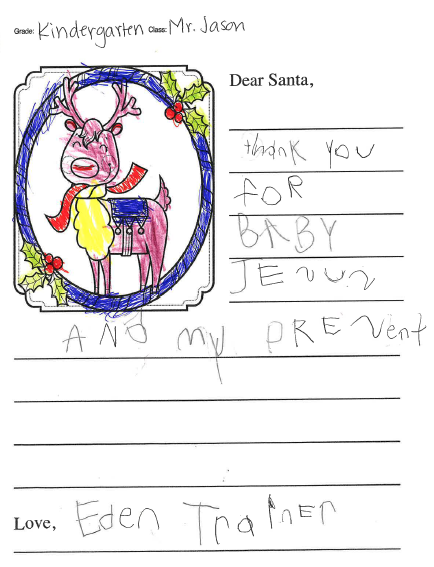 Grade: Kindergarten Class: Mr. Jason
Dear Santa,
thank you
foR
BABY
JEsus
AND my PREsent
Love, Eden Trainer